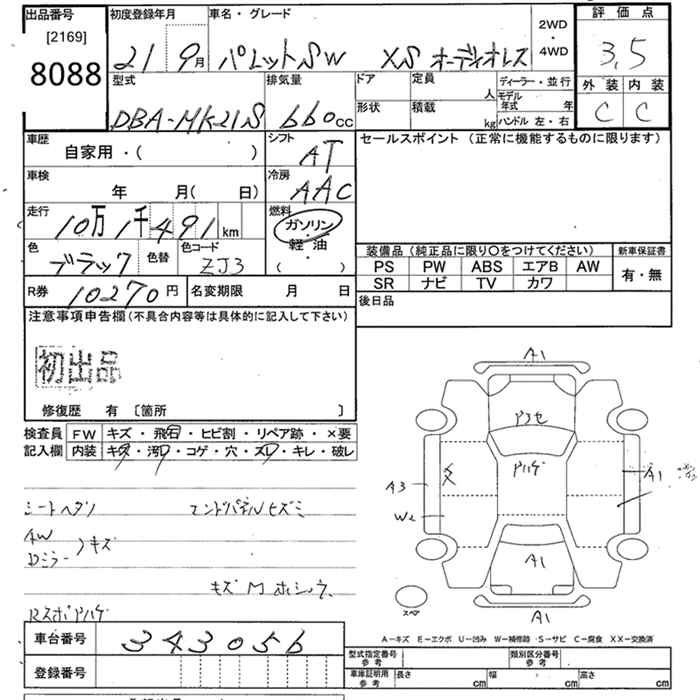 出品番号 初度登録年月 車名・グレード 2WD・4WD 評価点
[2169]
8088 21 9月 パレットSW XS オーディオレス 3,5
型式 排気量 ドア 定員 人 ディーラー・並行 外装 内装
DBA-MK21S 660cc 形状 積載 kg モデル年式 年 ハンドル 左・右 C C
車歴 シフト セールスポイント (正常に機能するものに限ります)
自家用・( ) AT
車検 冷房
年 月( 日) AAC
走行 燃料
10万1千491km ガソリン・軽油 ( )
色 色替 色コード 装備品 (純正品に限り○をつけてください) 新車保証書
ブラック ZJ3 PS PW ABS エアB AW 有・無
SR ナビ TV カワ
R券 10270円 名変期限 月 日 後日品
注意事項申告欄(不具合内容等は具体的に記入して下さい)
初出品
修復歴 有 〔箇所 〕
検査員 FW キズ・飛石・ヒビ割・リペア跡・×要
記入欄 内装 キズ・汚レ・コゲ・穴・スレ・キレ・破レ
A1
アコセ
アハゲ
A3
W2
A1
A1
A1
スペア
シートヘタリ エンドパネルヒズミ
AW
Dミラー 〉キズ
キズ M ホシュウ
Rスポアハゲ
A-キズ E-エクボ U-凹み W-補修跡 S-サビ C-腐食 XX-交換済
車台番号 343056
型式指定番号 参考 類別区分番号 参考
登録番号 車庫証明用 参考 長さ cm 幅 cm 高さ cm